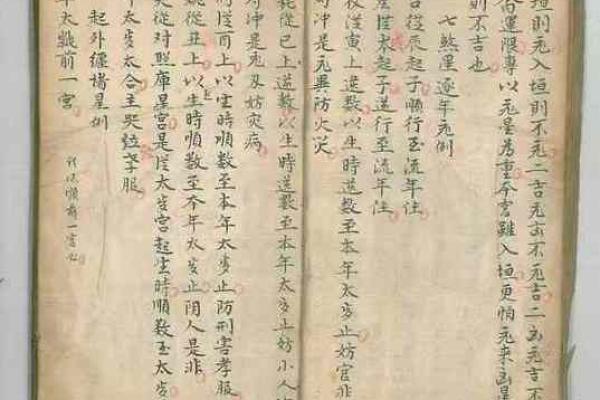 垣則元入垣則不元二吉元亥不元吉二凶元吉不
尚運限專以元星為重本宮雖入垣更怕元來凶星
則不吉也
七煞星逐年元例
宮從辰起子順行至流年住
星從未起子逆行至流年住
從寅上逆數以生時逆數至本年太歲止妨官非
對冲是元與防火災
耗從巳上逆數以生時逆數至本年太歲止妨小人
對冲是元及妨灾病
從酉上以生時順數至本年太歲止防刑害孝服
從丑上以生時順數至本年太歲止陰人是非
從對照庫星宮是從太歲宮起生時順數至太歲
年太歲太合主哭泣孝服
起外纏墻星例
行法順前一宮心
年太歲前一宮